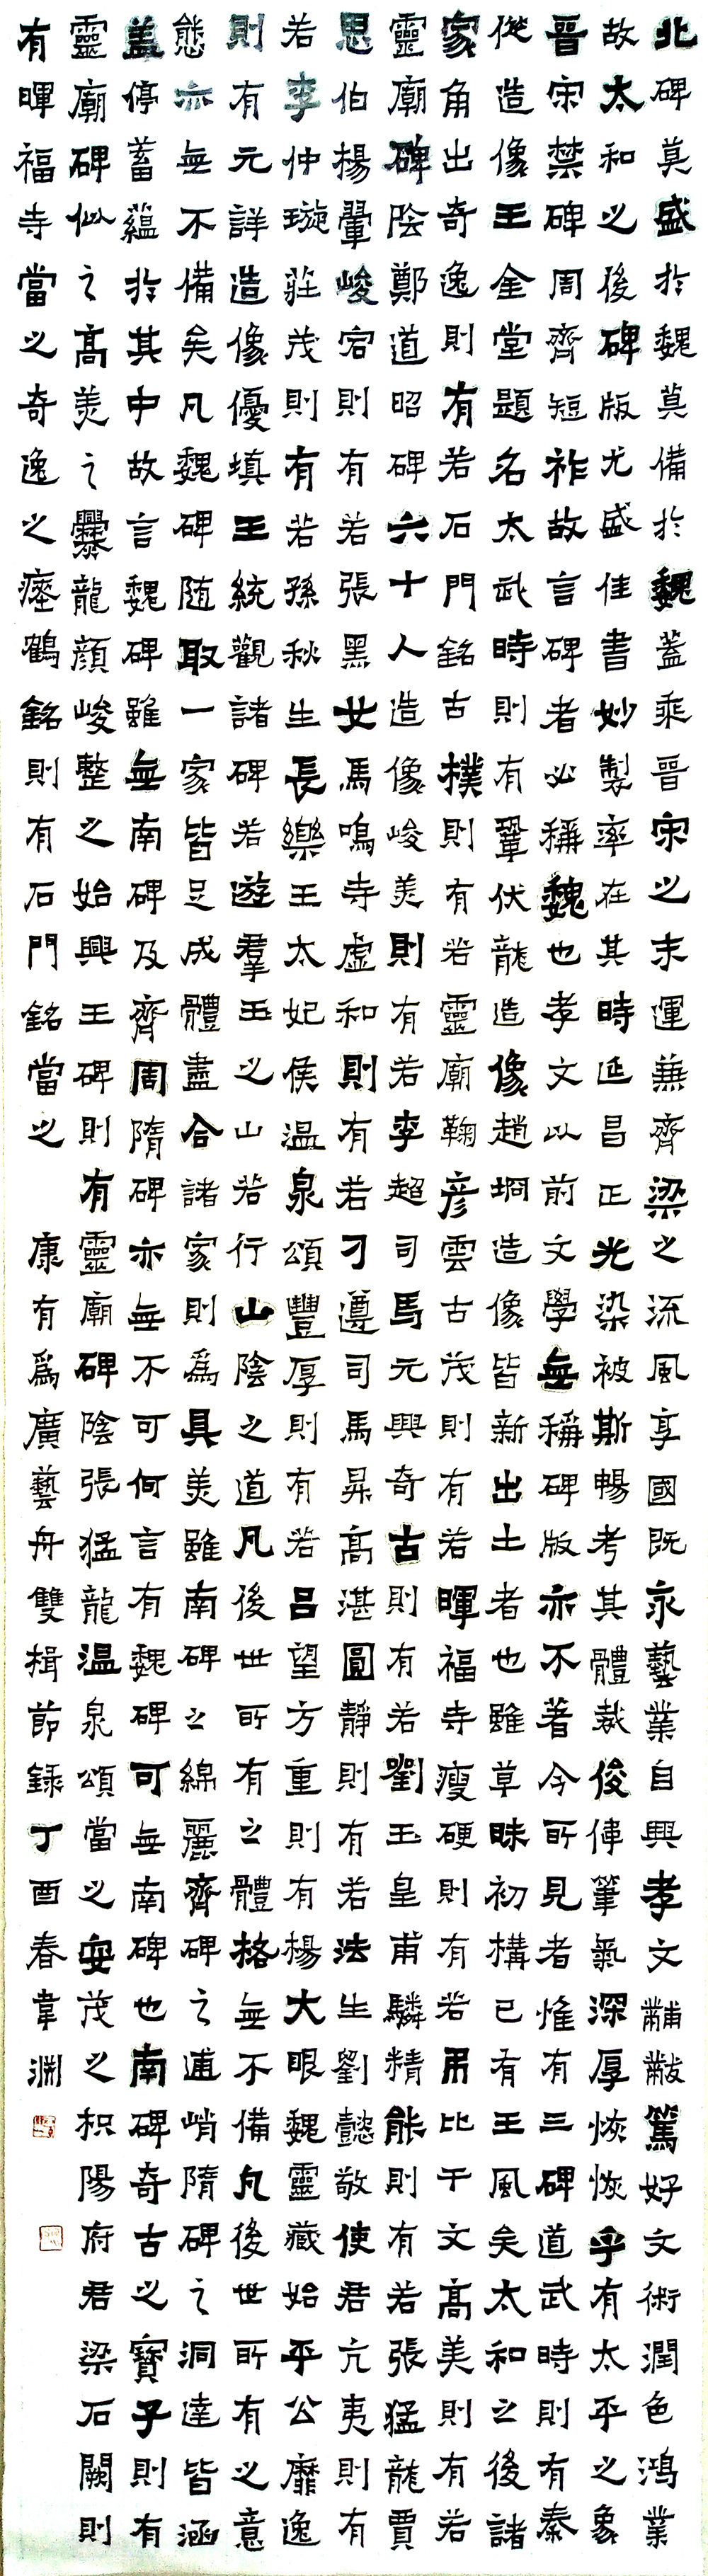 北碑莫盛於魏莫備於魏蓋乘晉宋之末運兼齊梁之流風享國既永藝業自興孝文黼黻篤好文術潤色鴻業
故太和之後碑版尤盛佳書妙製率在其時延昌正光染被斯暢考其體裁俊偉筆氣深厚恢恢乎有太平之象
晉宋禁碑周齊短祚故言碑者必稱魏也孝文以前文學無稱碑版亦不著今所見者惟有三碑道武時則有秦
從造像王全堂題名太武時則有鞏伏龍造像趙埛造像皆新出土者也雖草昧初構已有王風矣太和之後諸
家角出奇逸則有若石門銘古樸則有若靈廟鞠彥雲古茂則有若暉福寺瘦硬則有若弔比干文高美則有若
靈廟碑陰鄭道昭碑六十人造像峻美則有若李超司馬元興奇古則有若劉玉皇甫驎精能則有若張猛龍賈
思伯楊翬峻宕則有若張黑女馬鳴寺虛和則有若刁遵司馬昇高湛圓靜則有若法生劉懿敬使君亢夷則有
若李仲璇莊茂則有若孫秋生長樂王太妃侯溫泉頌豐厚則有若呂望方重則有楊大眼魏靈藏始平公靡逸
則有元詳造像優填王統觀諸碑若遊羣玉之山若行山陰之道凡後世所有之體格無不備凡後世所有之意
態亦無不備矣凡魏碑随取一家皆足成體盡合諸家則爲具美雖南碑之綿麗齊碑之逋峭隋碑之洞達皆涵
盖停蓄蘊於其中故言魏碑雖無南碑及齊周隋碑亦無不可何言有魏碑可無南碑也南碑奇古之寶子則有
靈廟碑似之高美之爨龍顏峻整之始興王碑則有靈廟碑陰張猛龍溫泉頌當之安茂之枳陽府君梁石闕則
有暉福寺當之奇逸之瘞鶴銘則有石門銘當之 康有爲廣藝舟雙楫節録丁酉春韋渊